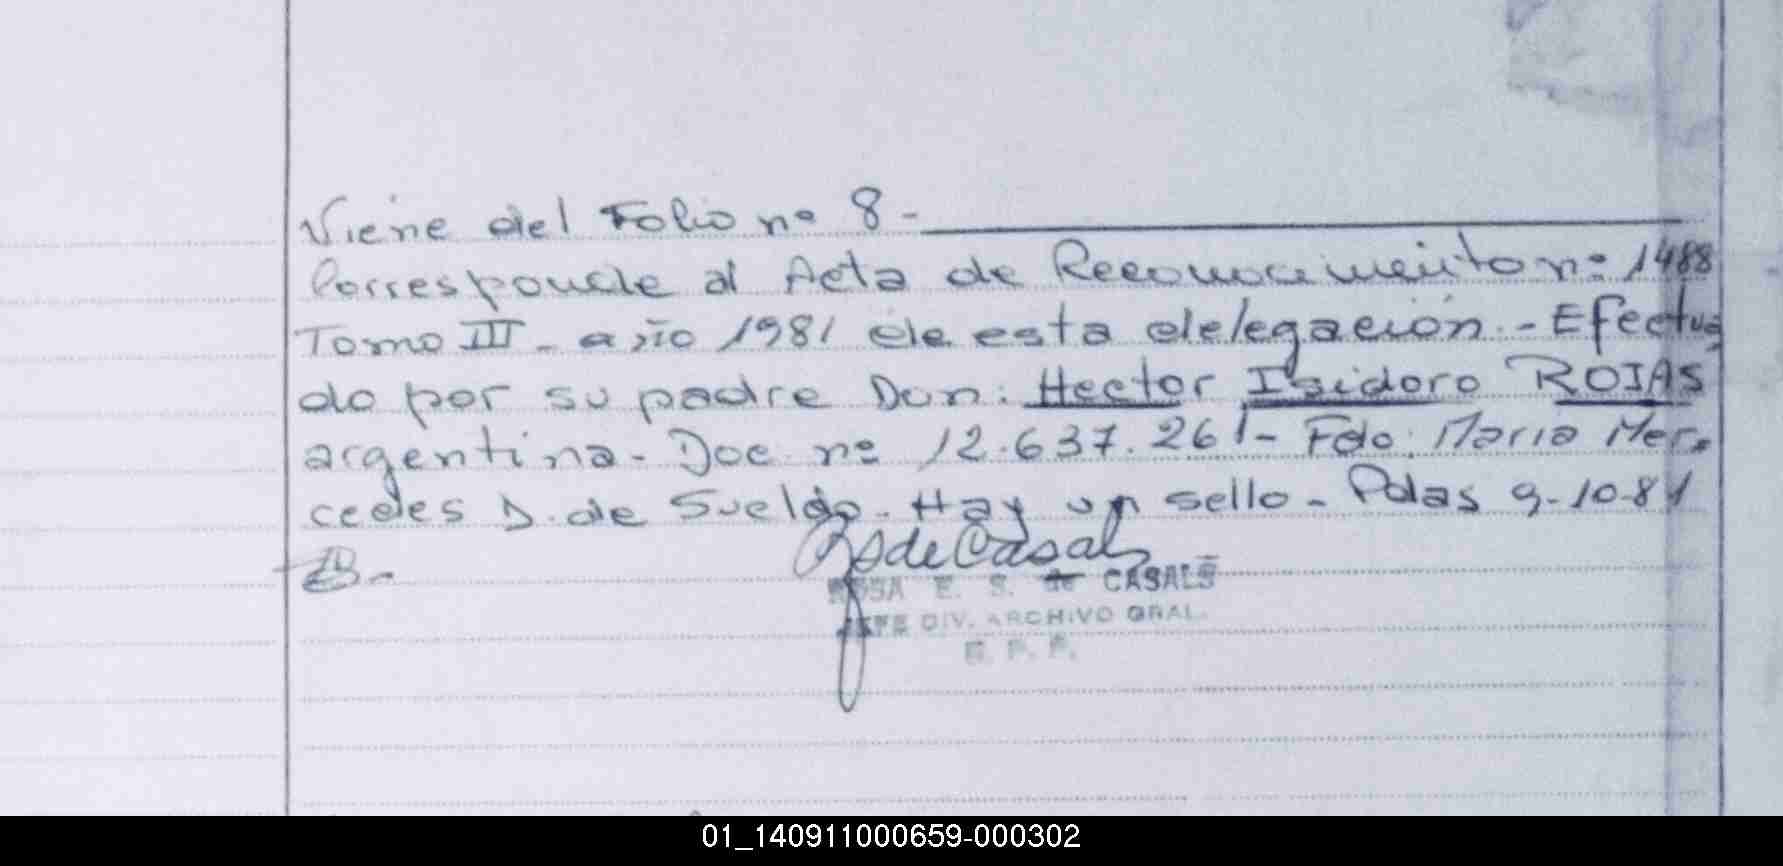 Viene del Folio nº 8 -
Corresponde al Acta de Reconocimiento nº 1488
Tomo III - año 1981 de esta delegación. - Efectua
do por su padre Don: Hector Isidoro ROJAS
argentina - Doc nº 12.637.261 - Fdo: Maria Mer-
cedes D. de Sueldo. Hay un sello - Pdas 9-10-81
RS de Casals
ROSA E. S. de CASALS
JEFE DIV. ARCHIVO GRAL.
01_140911000659-000302